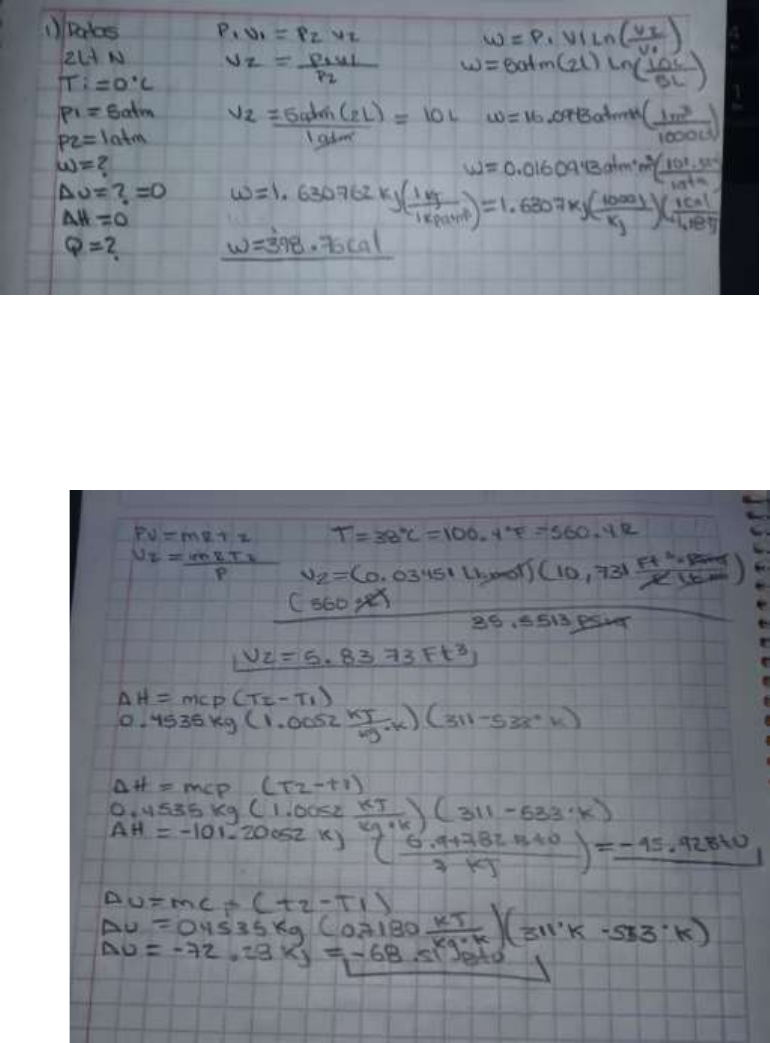 1) Datos
2Lt N
Ti = 0°C
P1 = 5atm
P2 = 1atm
W = ?
ΔU = ? = 0
ΔH = 0
Q = ?
P1 V1 = P2 V2
V2 = P1V1 / P2
V2 = 5atm (2L) / 1atm = 10L
W = P1 V1 Ln (V2/V1)
W = 5atm (2L) Ln (10L/5L)
W = 16.0943atm (1m³/1000Lt)
W = 0.0160943atm·m³ (101.
W = 1.630762 Kj (1Kj/1Kpam³) = 1.6307 Kj (1000J/Kj) (1cal/4.185
W = 398.75 cal
PV = mRT2
V2 = mRT2 / P
T = 38°C = 100.4°F = 560.4R
V2 = (0.03451 Lbmol) (10,731 Ft³·Psia
(560 R)
35.5513 Psia
V2 = 5.8373 Ft³
ΔH = mcp (T2 - T1)
0.4535 Kg (1.0052 KJ/Kg·K) (311-533°K)
ΔH = mcp (T2-T1)
0.4535 Kg (1.0052 KJ/Kg·K) (311 - 533°K)
ΔH = -101.20052 Kj = -95.92Btu
ΔU = mc (T2 - T1)
ΔU = 0.4535Kg (0.7180 KJ/Kg·K) (311°K - 533°K)
ΔU = -72.28 Kj = -68.51 Btu